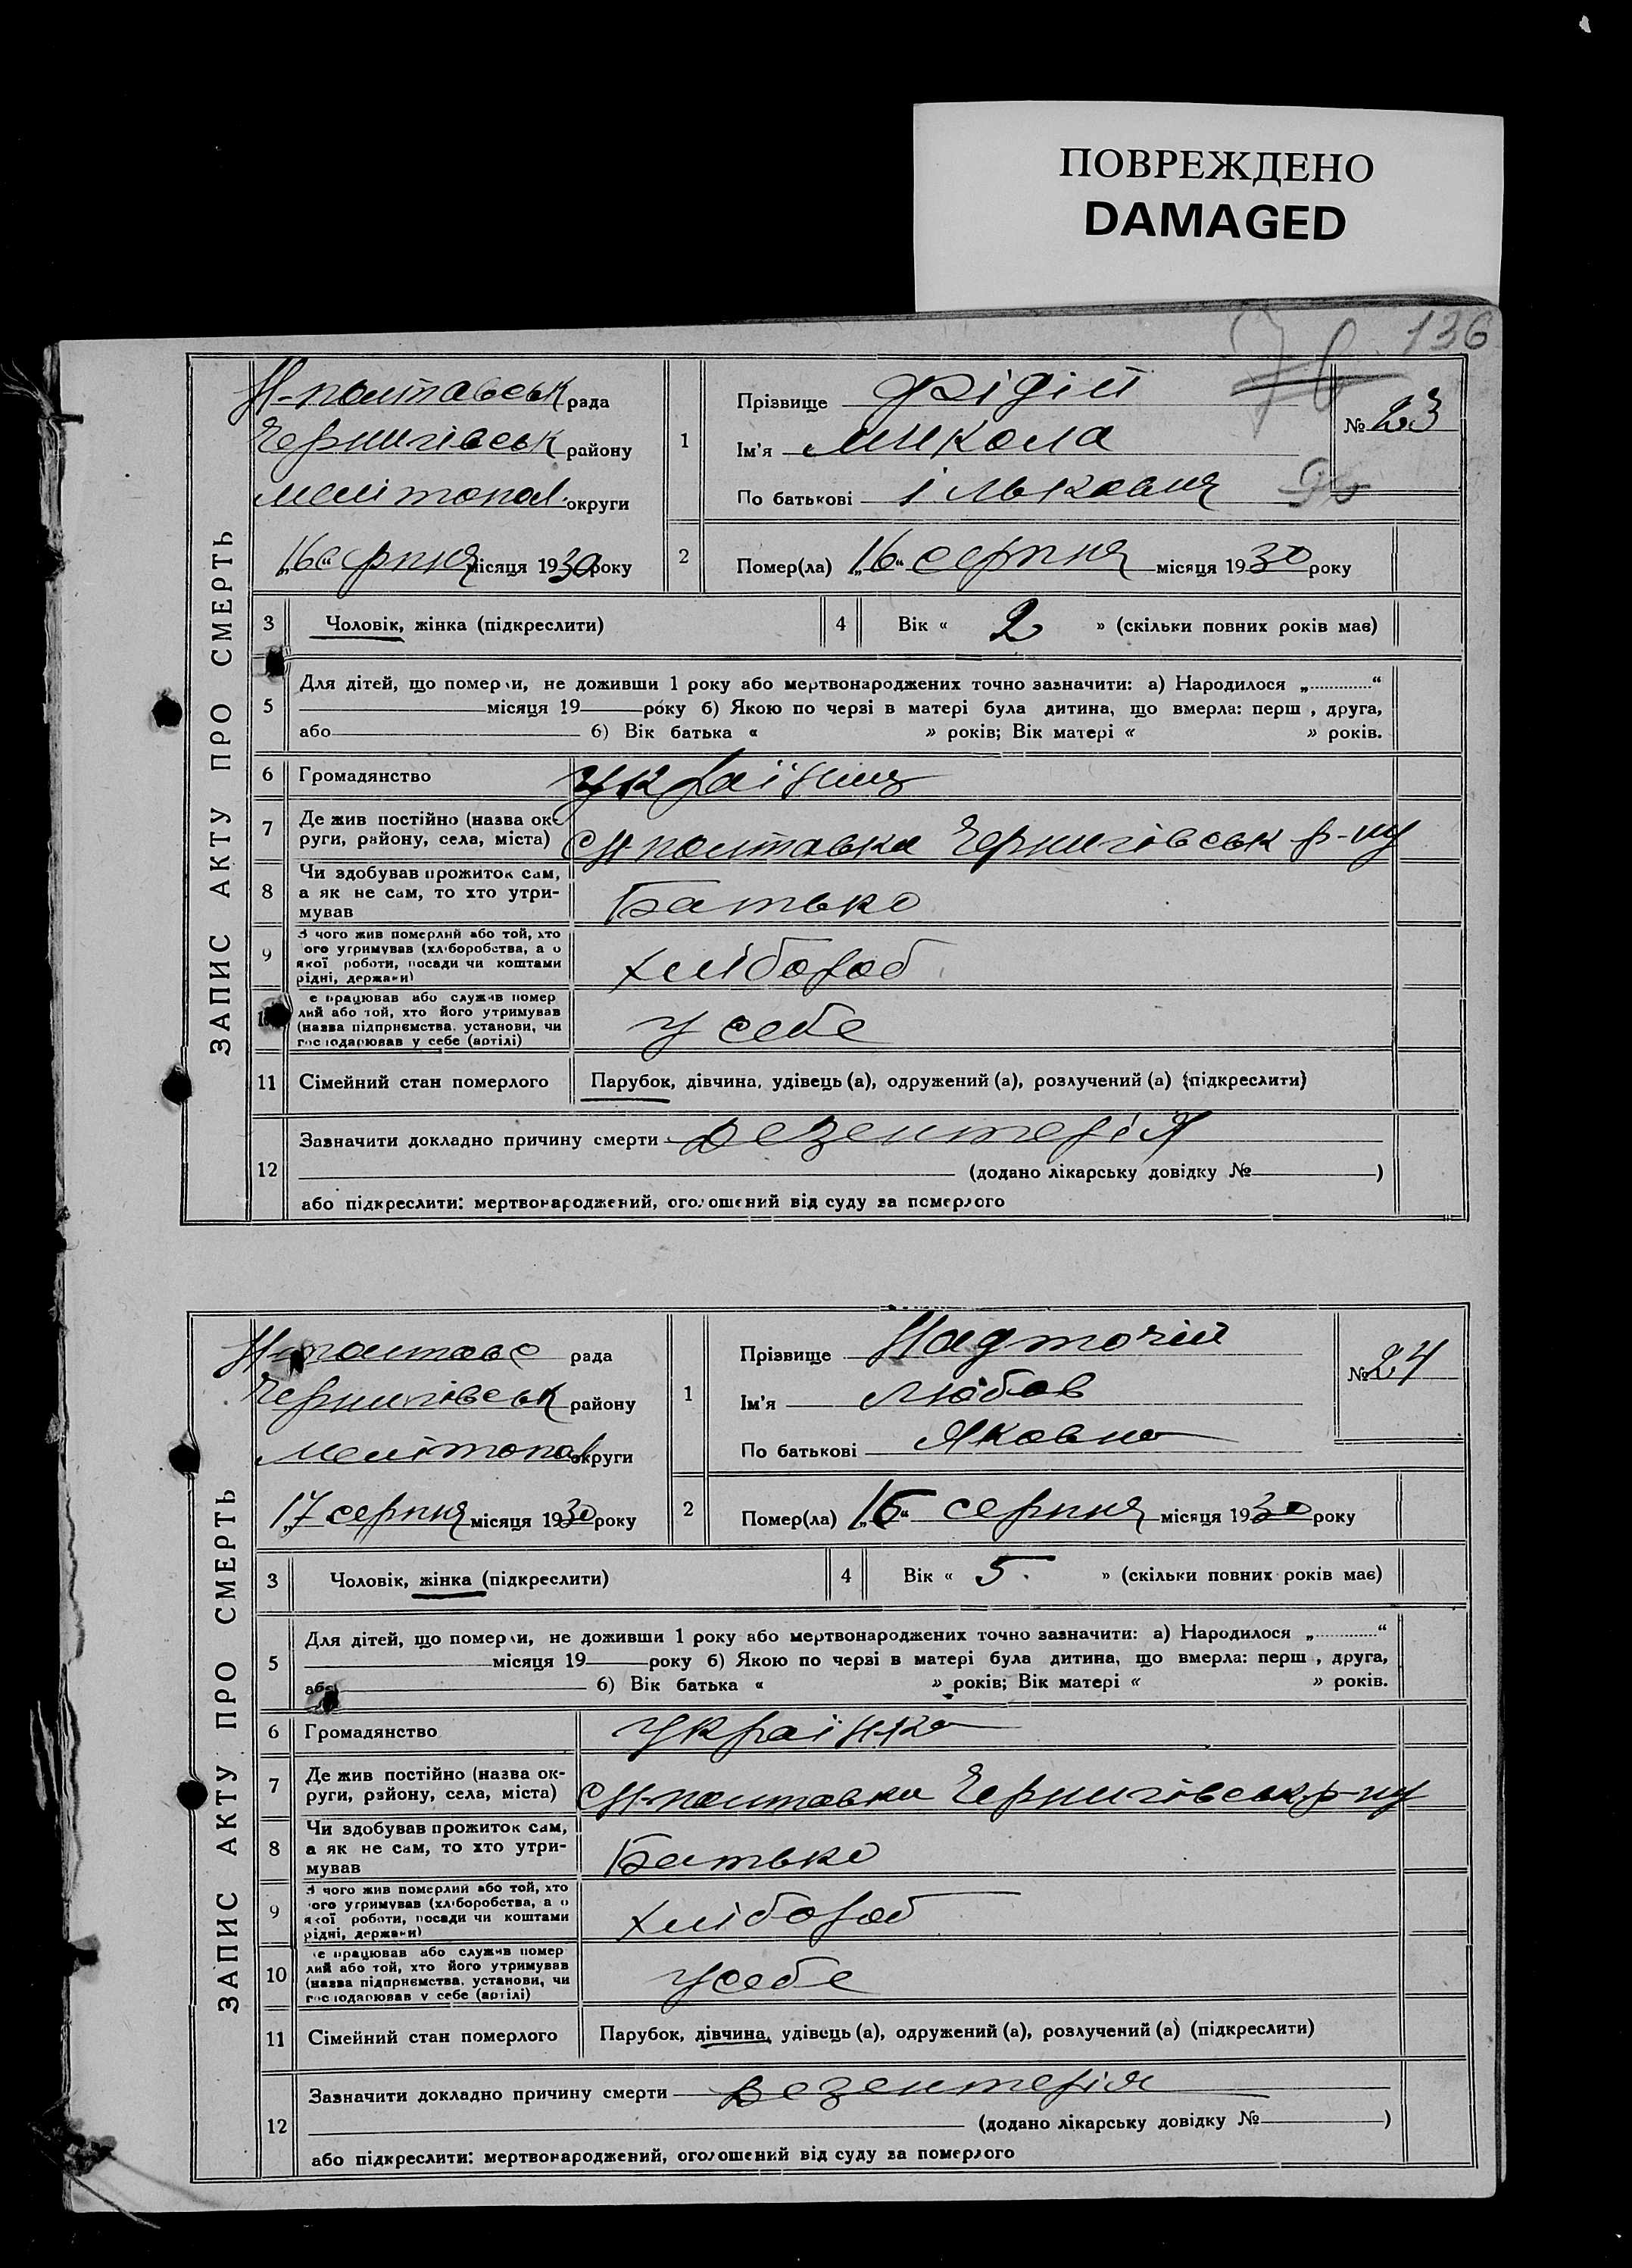 ПОВРЕЖДЕНО
DAMAGED
136
76
ЗАПИС АКТУ ПРО СМЕРТЬ
Н-полтавськ рада
Чернигівськ району
Меліпопол. округи
„16“ серпня місяця 1930 року
1
Прізвище Фідій
Ім'я Микола
По батькові Ількович
№ 23
2
Помер(ла) „16“ серпня місяця 1930 року
3
Чоловік, жінка (підкреслити)
4
Вік « 2 » (скільки повних років має)
5
Для дітей, що померли, не доживши 1 року або мертвонароджених точно зазначити: а) Народилося „............“
місяця 19 року б) Якою по черзі в матері була дитина, що вмерла: перш , друга,
або б) Вік батька « » років; Вік матері « » років.
6
Громадянство
Українць
7
Де жив постійно (назва ок-
руги, району, села, міста)
С Н полтавка Чернигівськ р-ну
8
Чи здобував прожиток сам,
а як не сам, то хто утри-
мував
Батько
9
З чого жив померлий або той, хто
ого утримував (хліборобства, а о
якої роботи, посади чи коштами
рідні, держави)
хлібороб
е працював або служив помер
лий або той, хто його утримував
(назва підприємства, установи, чи
господарював у себе (артілі)
У себе
11
Сімейний стан померлого
Парубок, дівчина, удівець (а), одружений (а), розлучений (а) (підкреслити)
12
Зазначити докладно причину смерти Дезентерія
(додано лікарську довідку № )
або підкреслити: мертвонароджений, оголошений від суду за померлого
ЗАПИС АКТУ ПРО СМЕРТЬ
Н-полтавс рада
Чернигівськ району
Мелітопол округи
„17 серпня місяця 1930 року
1
Прізвище Надточій
Ім'я Любов
По батькові Яковна
№ 24
2
Помер(ла) „16“ серпня місяця 1930 року
3
Чоловік, жінка (підкреслити)
4
Вік « 5. » (скільки повних років має)
5
Для дітей, що померли, не доживши 1 року або мертвонароджених точно зазначити: а) Народилося „............“
місяця 19 року б) Якою по черзі в матері була дитина, що вмерла: перш , друга,
або б) Вік батька « » років; Вік матері « » років.
6
Громадянство
Українка
7
Де жив постійно (назва ок-
руги, району, села, міста)
С Н-полтавка Чернигівськ р-ну
8
Чи здобував прожиток сам,
а як не сам, то хто утри-
мував
Батько
9
З чого жив померлий або той, хто
ого утримував (хліборобства, а о
якої роботи, посади чи коштами
рідні, держави)
хлібороб
10
е працював або служив помер
лий або той, хто його утримував
(назва підприємства, установи, чи
господарював у себе (артілі)
У себе
11
Сімейний стан померлого
Парубок, дівчина, удівець (а), одружений (а), розлучений (а) (підкреслити)
12
Зазначити докладно причину смерти Дезентерія
(додано лікарську довідку № )
або підкреслити: мертвонароджений, оголошений від суду за померлого